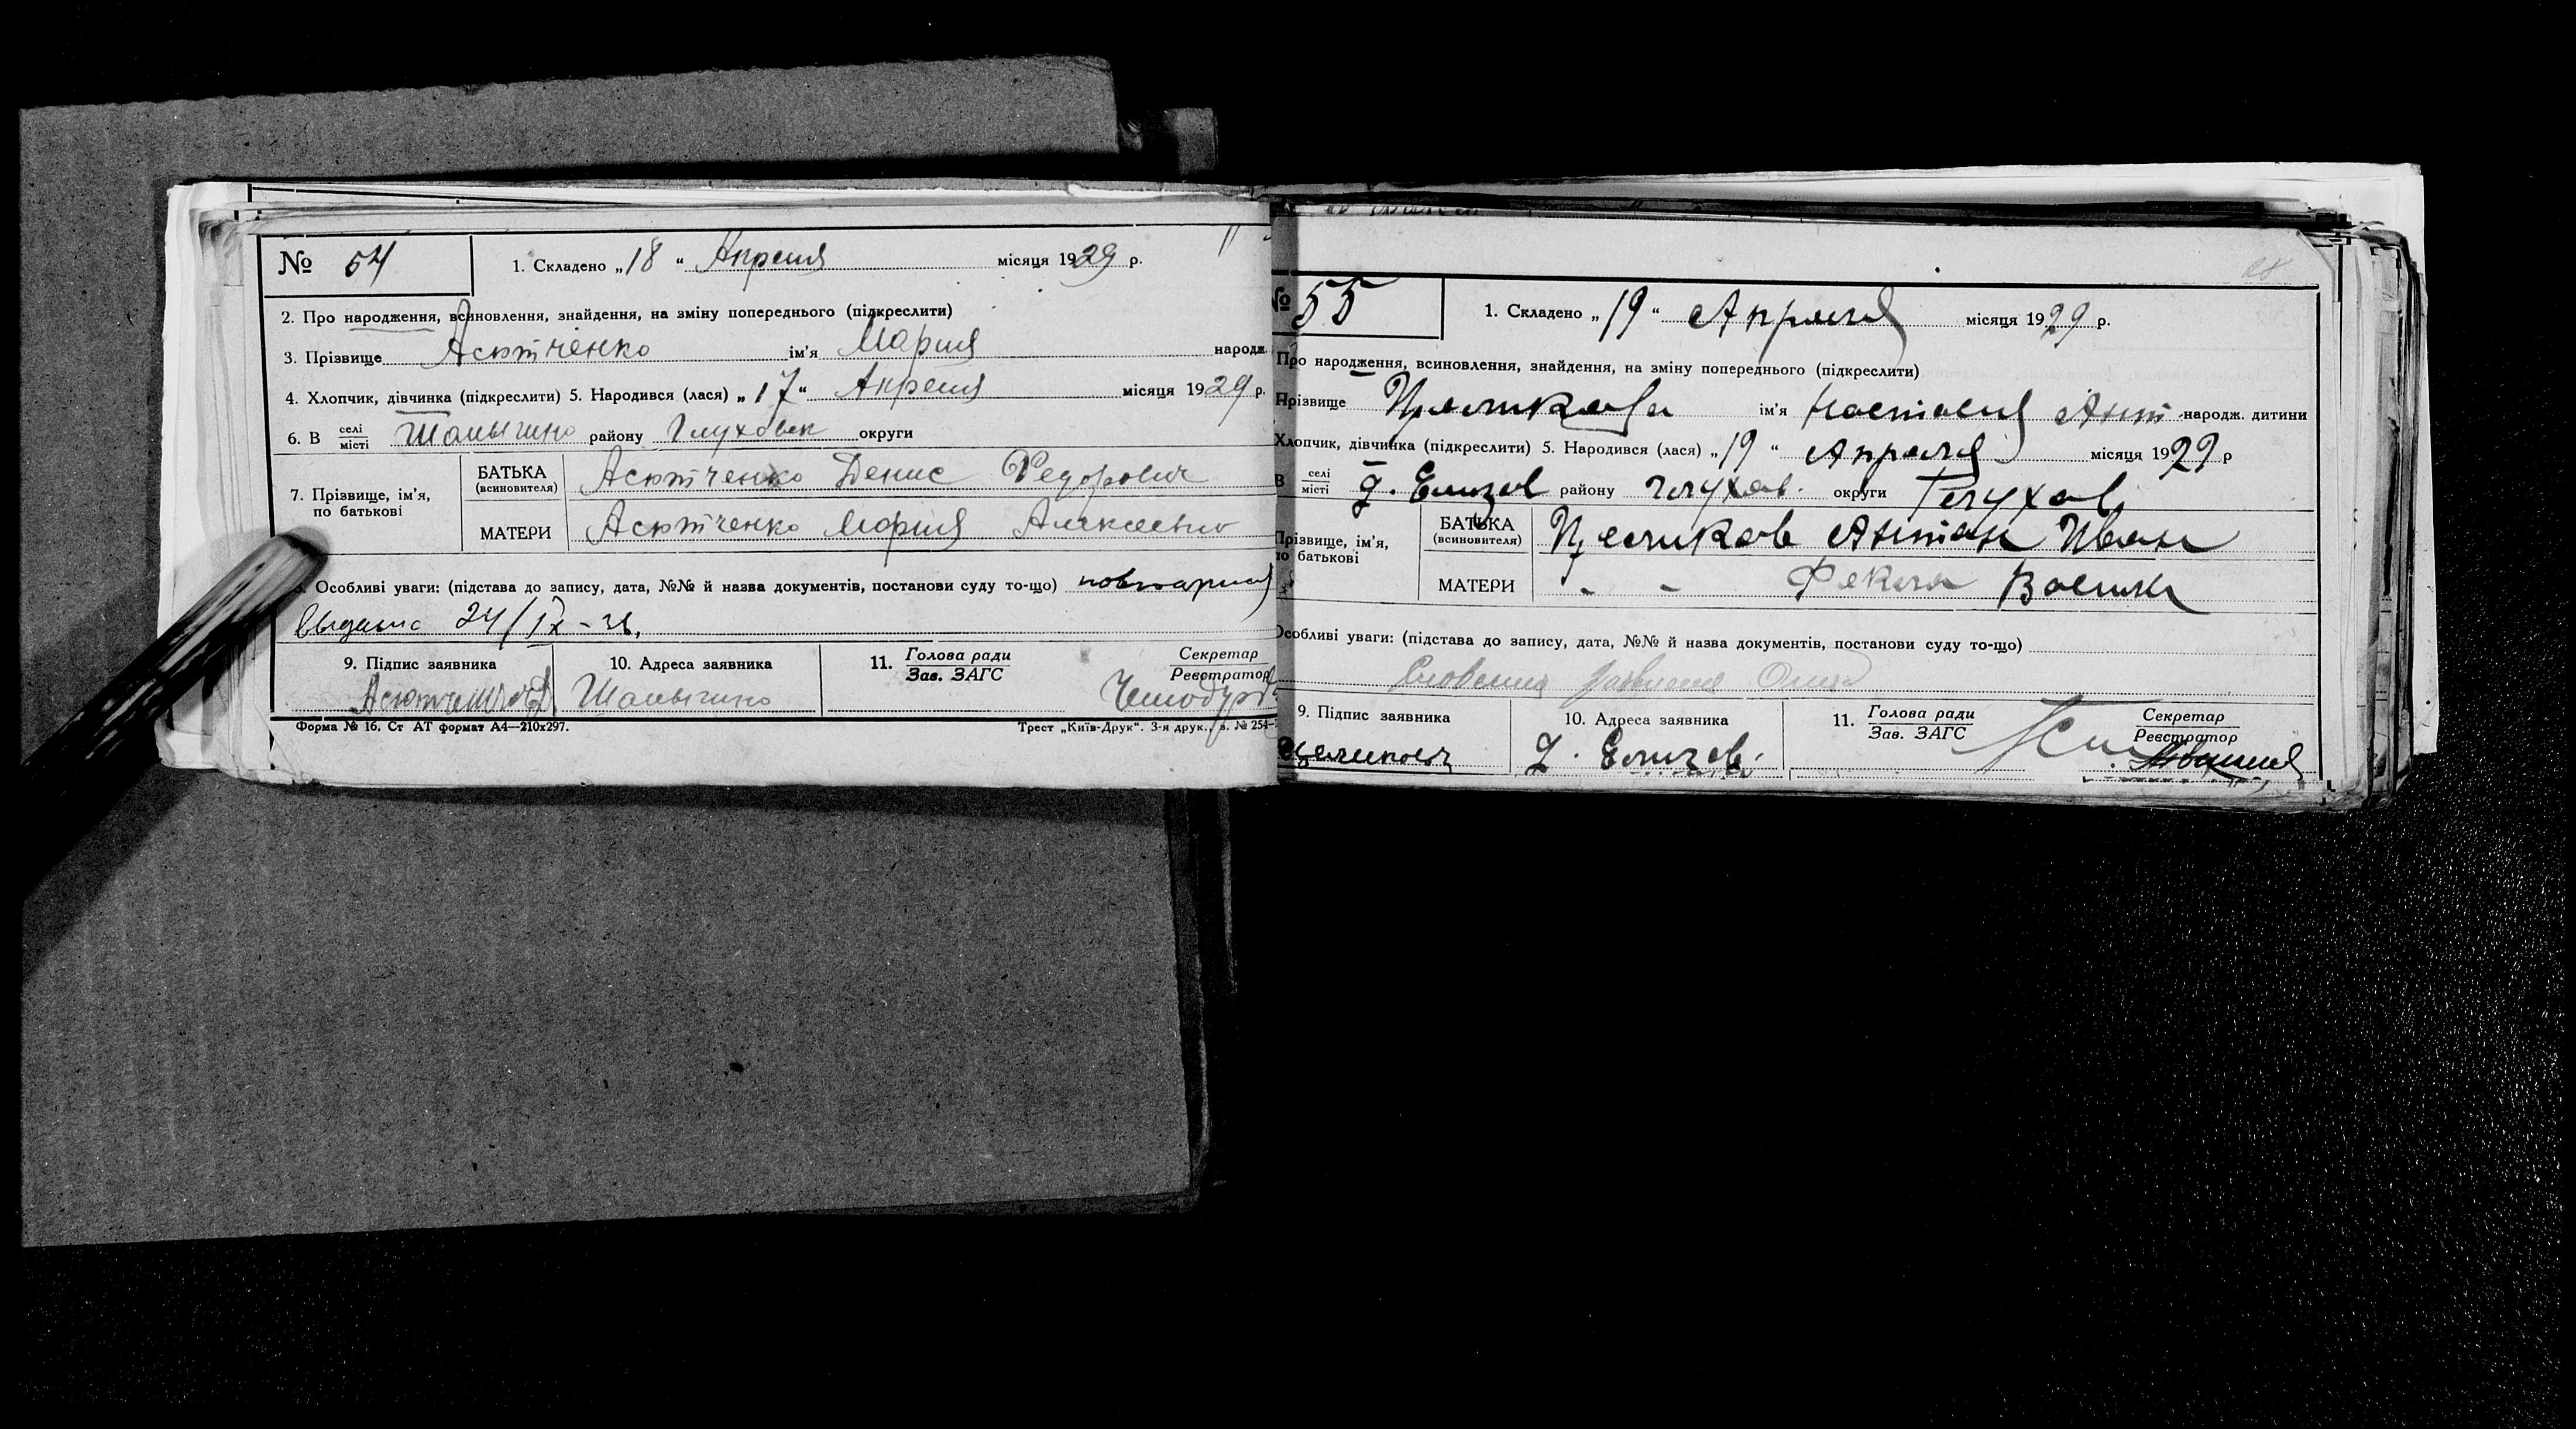 № 54
1. Складено „18“ Апреля місяця 1929 р.
2. Про народження, всиновлення, знайдення, на зміну попереднього (підкреслити)
3. Прізвище Асютченко ім'я Мария народж
4. Хлопчик, дівчинка (підкреслити) 5. Народився (лася) „17“ Апреля місяця 1929 р.
6. В селі місті Шалыгино району Глуховск округи
7. Прізвище, ім'я, по батькові
БАТЬКА (всиновителя) Асютченко Денис Федорович
МАТЕРИ Асютченко Мария Алексевно
Особливі уваги: (підстава до запису, дата, №№ й назва документів, постанови суду то-що) повторная
выдано 24/IX-
9. Підпис заявника
10. Адреса заявника Шалыгино
11. Голова ради Зав. ЗАГС
Секретар Реєстратор
Форма № 16. Ст АТ формат А4—210х297.
Трест „Київ-Друк“. 3-я друк., з. № 254-
№ 55
1. Складено „19“ Апреля місяця 1929 р.
Про народження, всиновлення, знайдення, на зміну попереднього (підкреслити)
Прізвище ім'я Настасия Ант народж. дитини
Хлопчик, дівчинка (підкреслити) 5. Народився (лася) „19“ Апреля місяця 1929 р
В селі місті району Глухов. округи Глухов
Прізвище, ім'я, по батькові
БАТЬКА (всиновителя) Антон Иван
МАТЕРИ - - Фекла Васили
Особливі уваги: (підстава до запису, дата, №№ й назва документів, постанови суду то-що)
9. Підпис заявника
10. Адреса заявника
11. Голова ради Зав. ЗАГС
Секретар Реєстратор